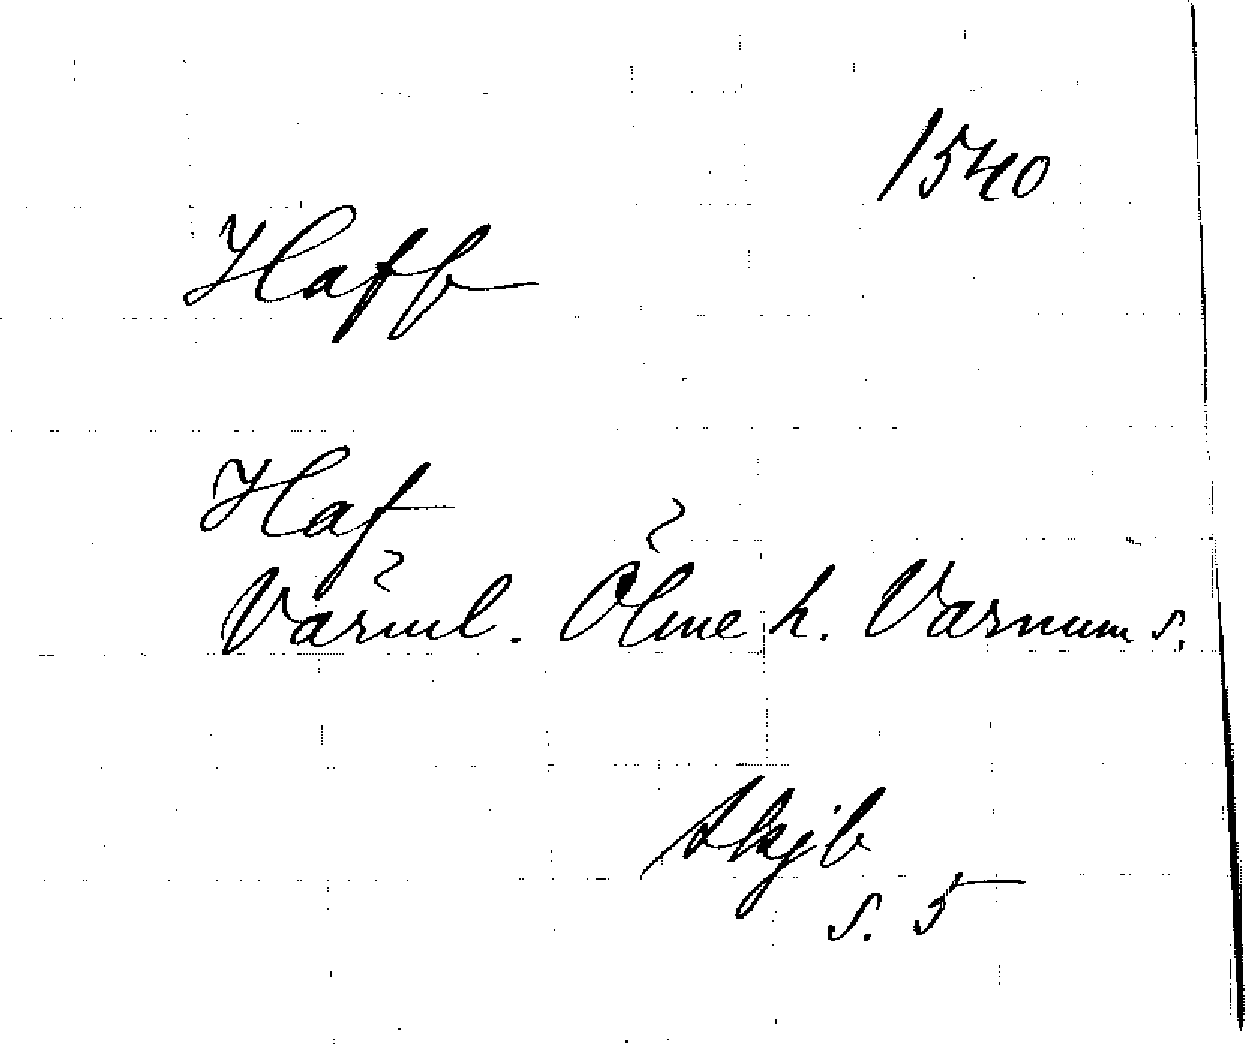 1540
Haff
Haf
Värml. Ölme h. Varnums s.
Skjb
s. 5